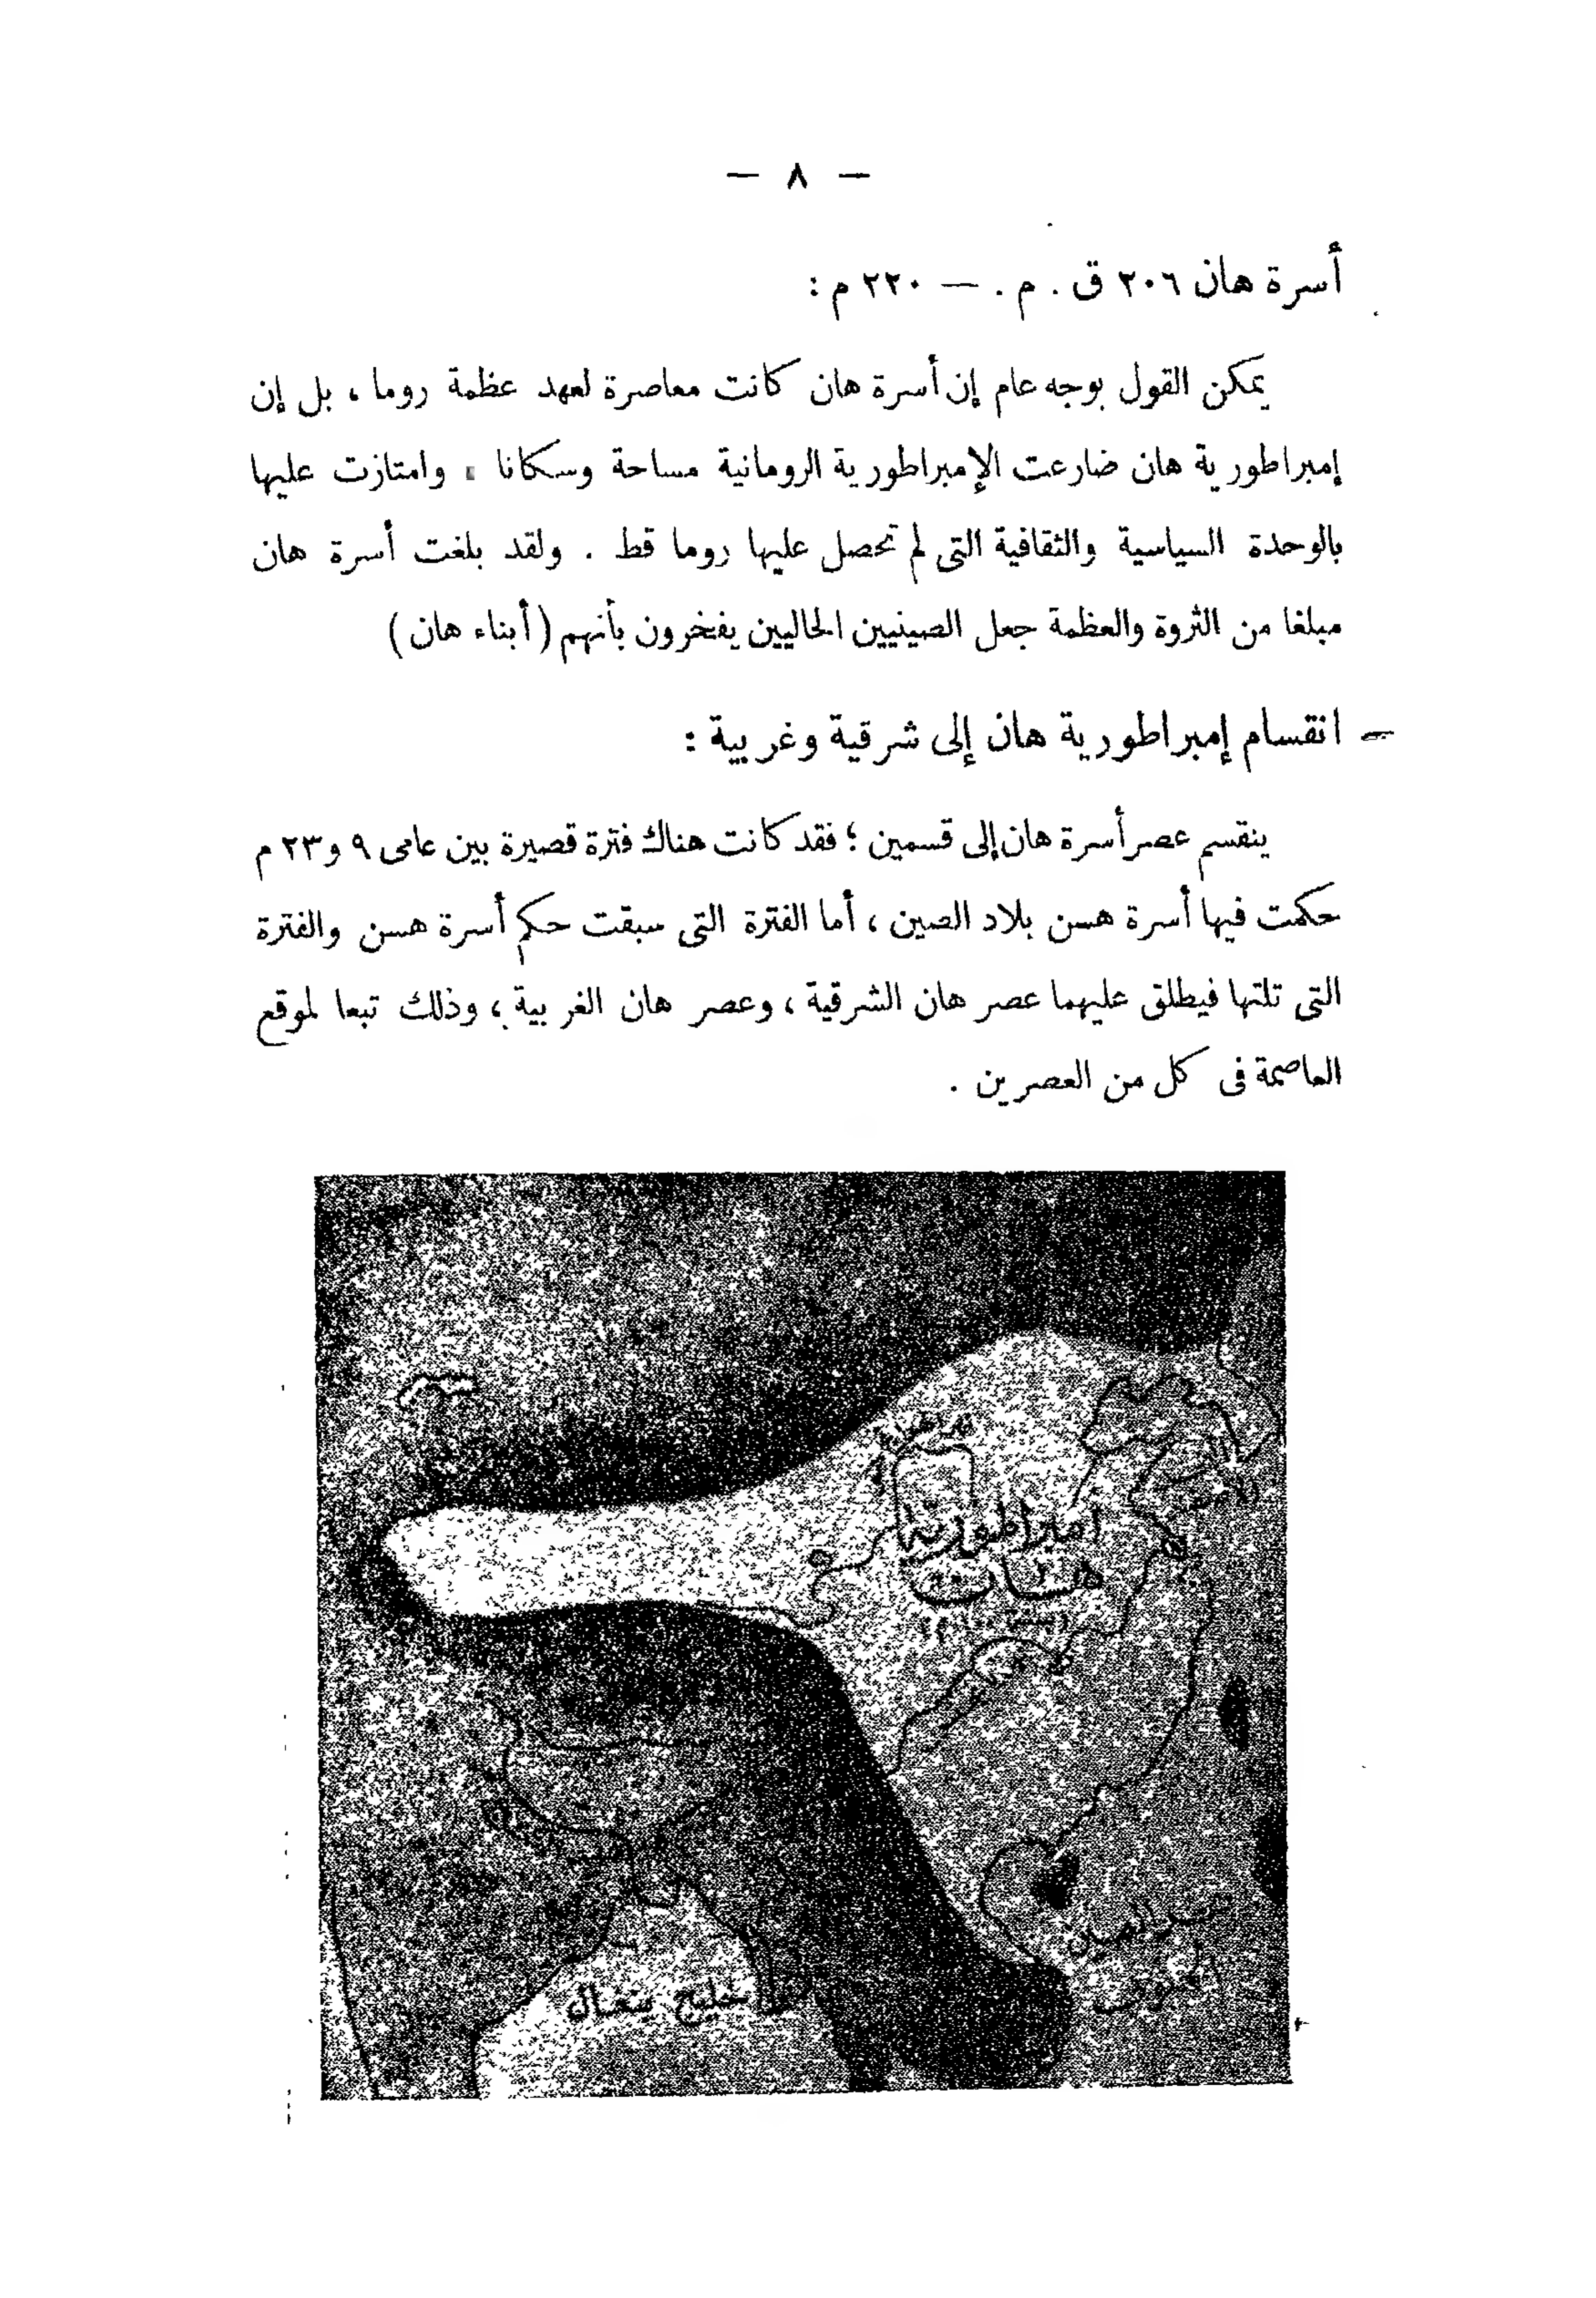 — ٨ —
أسرة هان ٢٠٦ ق . م . — ٢٢٠ م :
يمكن القول بوجه عام إن أسرة هان كانت معاصرة لعهد عظمة روما ، بل إن
إمبراطورية هان ضارعت الإمبراطورية الرومانية مساحة وسكانا ، وامتازت عليها
بالوحدة السياسية والثقافية التى لم تحصل عليها روما قط . ولقد بلغت أسرة هان
مبلغا من الثروة والعظمة جعل الصينيين الحاليين يفتخرون بأنهم ( أبناء هان )
— انقسام إمبراطورية هان إلى شرقية وغربية :
ينقسم عصر أسرة هان إلى قسمين ؛ فقد كانت هناك فترة قصيرة بين عامى ٩ و٢٣ م
حكمت فيها أسرة هسن بلاد الصين ، أما الفترة التى سبقت حكم أسرة هسن والفترة
التى تلتها فيطلق عليهما عصر هان الشرقية ، وعصر هان الغربية ، وذلك تبعا لموقع
العاصمة فى كل من العصرين .
امبراطورية
هان
بحر الصين
الجنوبى
خليج بنغال